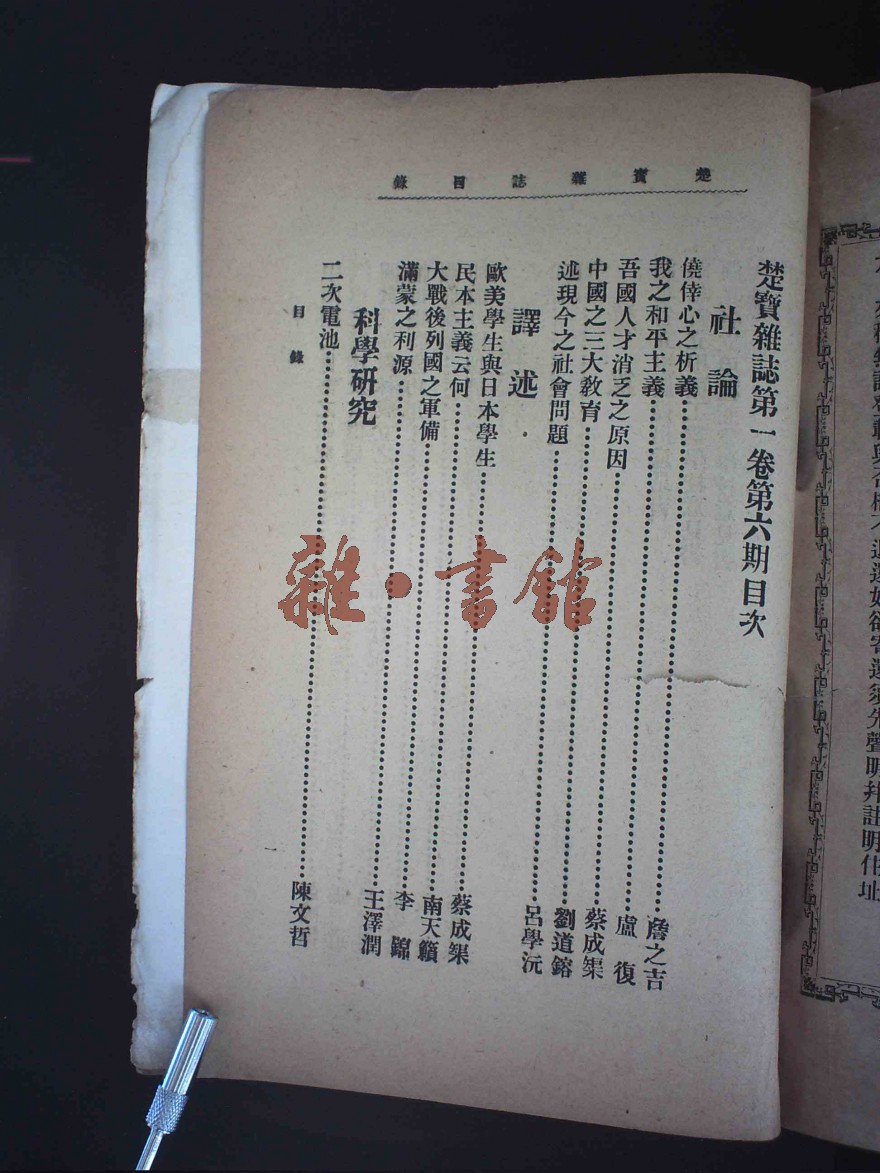 楚寶雜誌目錄
楚寶雜誌第一卷第六期目次
社論
僥倖心之析義……詹之吉
我之和平主義……盧復
吾國人才消乏之原因……蔡成榘
中國之三大教育……劉道鎔
述現今之社會問題……呂學沅
譯述
歐美學生與日本學生……蔡成榘
民本主義云何……南天籟
大戰後列國之軍備……李錦
滿蒙之利源……王澤潤
科學研究
二次電池……陳文哲
目錄
雜·書館
概不退還如欲寄還須先聲明并註明住址